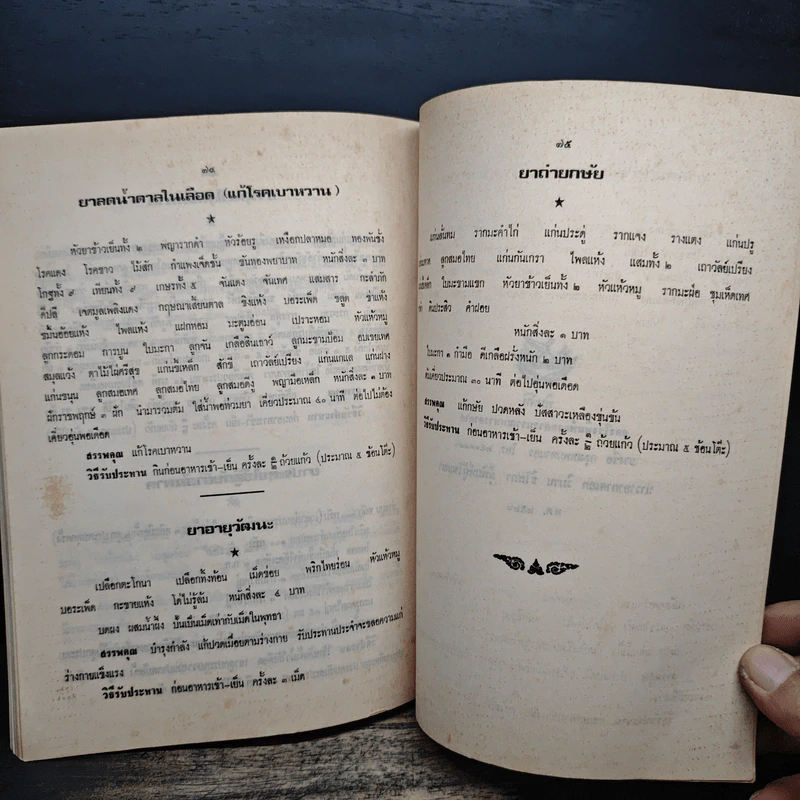 ๗๔
ยาลดน้ำตาลในเลือด (แก้โรคเบาหวาน)
หัวยาข้าวเย็นทั้ง ๒ พญารากดำ หัวร้อยรู เหงือกปลาหมอ ทองพันชั่ง
โรคแดง โรคขาว ไม้สัก กำแพงเจ็ดชั้น ขันทองพยาบาท หนักสิ่งละ ๓ บาท
โกฐทั้ง ๙ เทียนทั้ง ๙ เกษรทั้ง ๕ จันแดง จันเทศ แสมสาร กะลำภัก
ดีปลี เจตมูลเพลิงแดง กฤษณาเสี้ยนตาล ขิงแห้ง บอระเพ็ด ชลูด ข่าแห้ง
ขมิ้นอ้อยแห้ง ไพลแห้ง แฝกหอม มะตูมอ่อน เปราะหอม หัวแห้วหมู
ลูกกระดอม การบูน ใบมะกา ลูกจัน เกลือสินเธาว์ ลูกมะขามป้อม อบเชยเทศ
สมุลแว้ง ตาไม้ไผ่ศรีสุข แก่นขี้เหล็ก สักขี เถาวัลย์เปรียง แก่นแกแล แก่นฝาง
แก่นขนุน ลูกสมอเทศ ลูกสมอไทย ลูกสมอดีงู พญามือเหล็ก หนักสิ่งละ ๑ บาท
ฝักราชพฤกษ์ ๓ ฝัก นำมารวมต้ม ใส่น้ำพอท่วมยา เคี่ยวประมาณ ๔๐ นาที ต่อไปไม่ต้อง
เคี่ยวอุ่นพอเดือด
สรรพคุณ แก้โรคเบาหวาน
วิธีรับประทาน กินก่อนอาหารเช้า–เย็น ครั้งละ ๑/๒ ถ้วยแก้ว (ประมาณ ๕ ช้อนโต๊ะ)
ยาอายุวัฒนะ
เปลือกตะโกนา เปลือกทิ้งท้อน เม็ดข่อย พริกไทยร่อน หัวแห้วหมู
บอระเพ็ด กะชายแห้ง โด่ไม่รู้ล้ม หนักสิ่งละ ๔ บาท
บดผง ผสมน้ำผึ้ง ปั้นเป็นเม็ดเท่ากับเม็ดในพุทธา
สรรพคุณ บำรุงกำลัง แก้ปวดเมื่อยตามร่างกาย รับประทานประจำจะชลอความแก่
ร่างกายแข็งแรง
วิธีรับประทาน ก่อนอาหารเช้า–เย็น ครั้งละ ๓ เม็ด
๗๕
ยาถ่ายกษัย
แก่นลั่นทม รากมะคำไก่ แก่นประดู่ รากแจง รางแดง แก่นปรู
ลูกสมอไทย แก่นกันเกรา ไพลแห้ง แสมทั้ง ๒ เถาวัลย์เปรียง
ใบมะขามแขก หัวยาข้าวเย็นทั้ง ๒ หัวแห้วหมู รากมะเฝือ ชุมเห็ดเทศ
ดินประสิว คำฝอย
หนักสิ่งละ ๑ บาท
ใบมะกา ๑ กำมือ ดีเกลือฝรั่งหนัก ๒ บาท
ต้มเคี่ยวประมาณ ๓๐ นาที ต่อไปอุ่นพอเดือด
สรรพคุณ แก้กษัย ปวดหลัง ปัสสาวะเหลืองขุ่นข้น
วิธีรับประทาน ก่อนอาหารเช้า–เย็น ครั้งละ ๑/๒ ถ้วยแก้ว (ประมาณ ๕ ช้อนโต๊ะ)